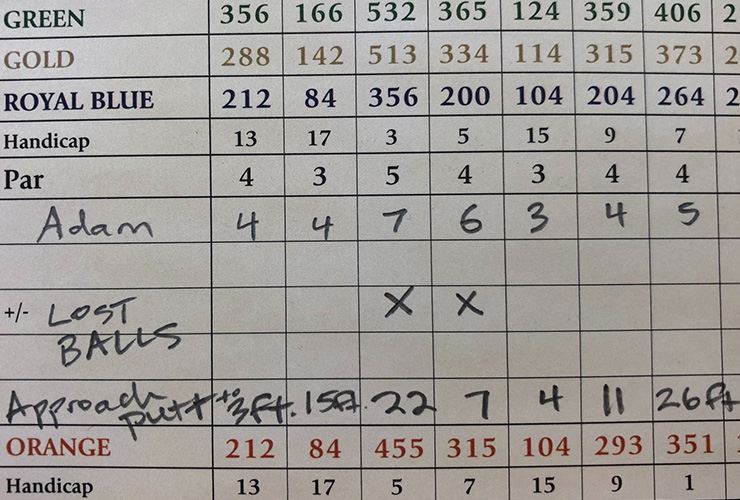 GREEN 356 166 532 365 124 359 406 2
GOLD 288 142 513 334 114 315 373 2
ROYAL BLUE 212 84 356 200 104 204 264 2
Handicap 13 17 3 5 15 9 7
Par 4 3 5 4 3 4 4
Adam 4 4 7 6 3 4 5
+/- LOST X X
BALLS
Approach putt to 3ft. 15ft. 22 7 4 11 26ft
ORANGE 212 84 455 315 104 293 351
Handicap 13 17 5 7 15 9 1